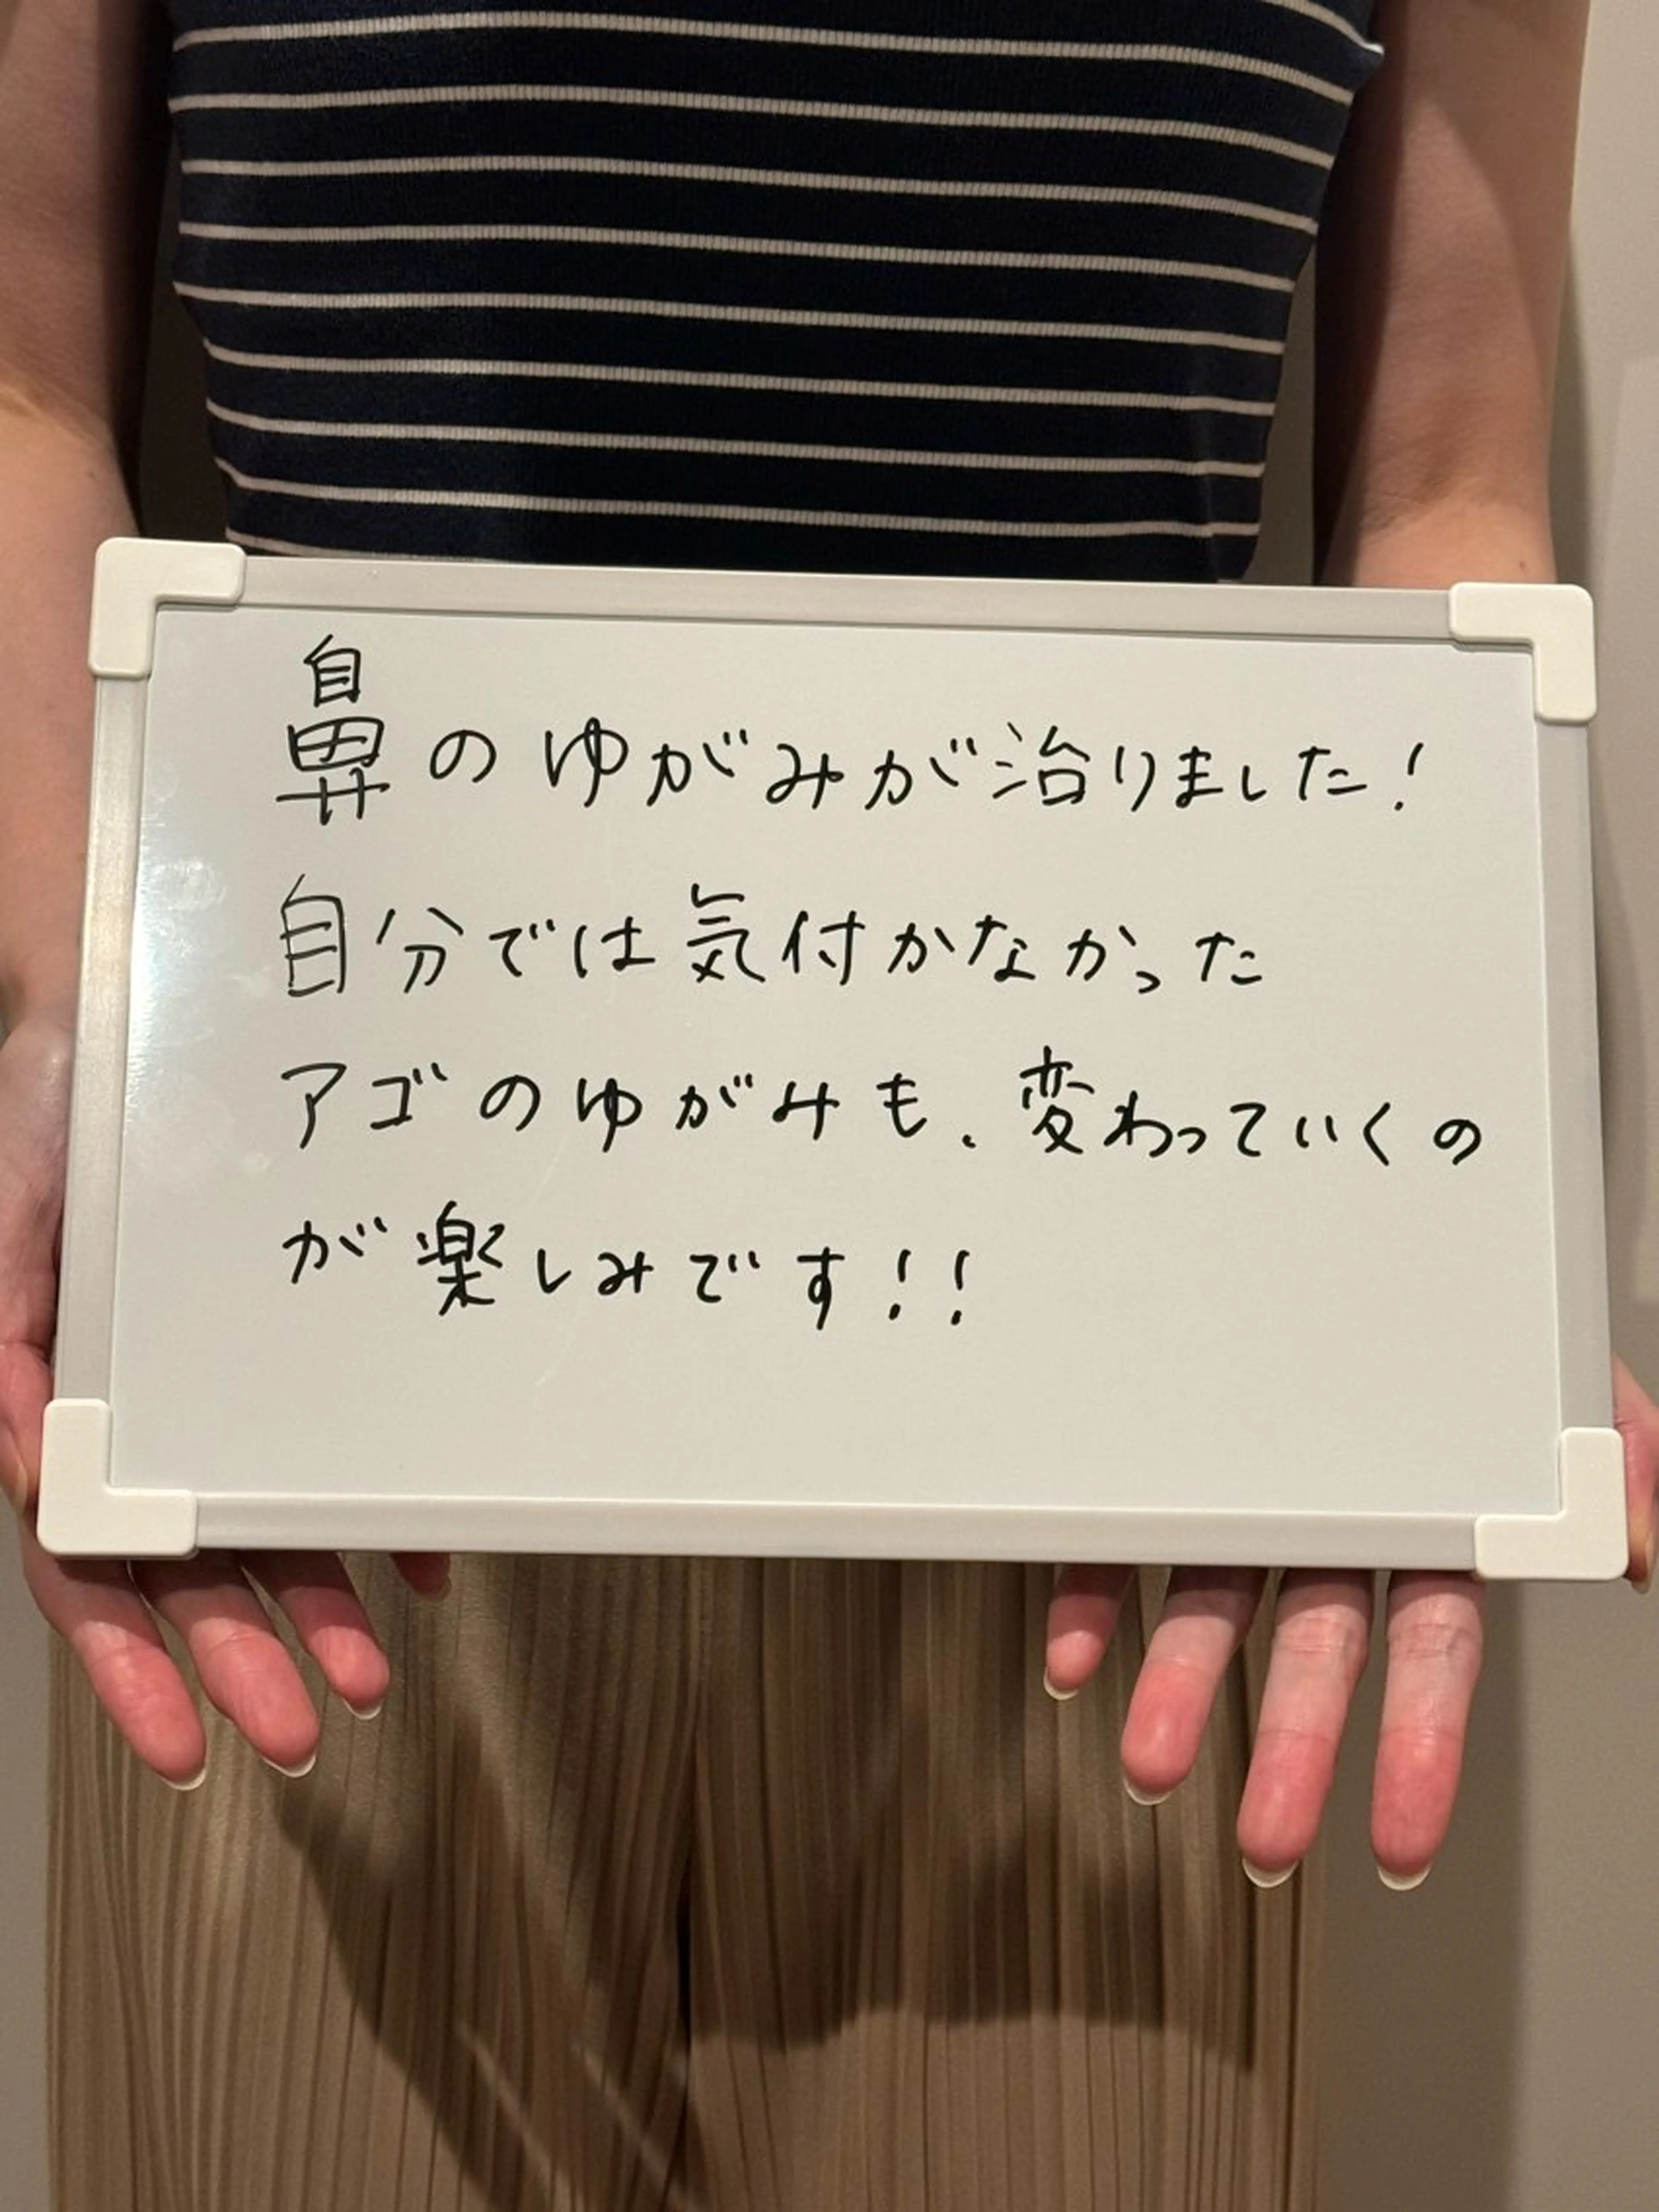 鼻のゆがみが治りました!
自分では気付かなかった
アゴのゆがみも、変わっていくの
が楽しみです!!